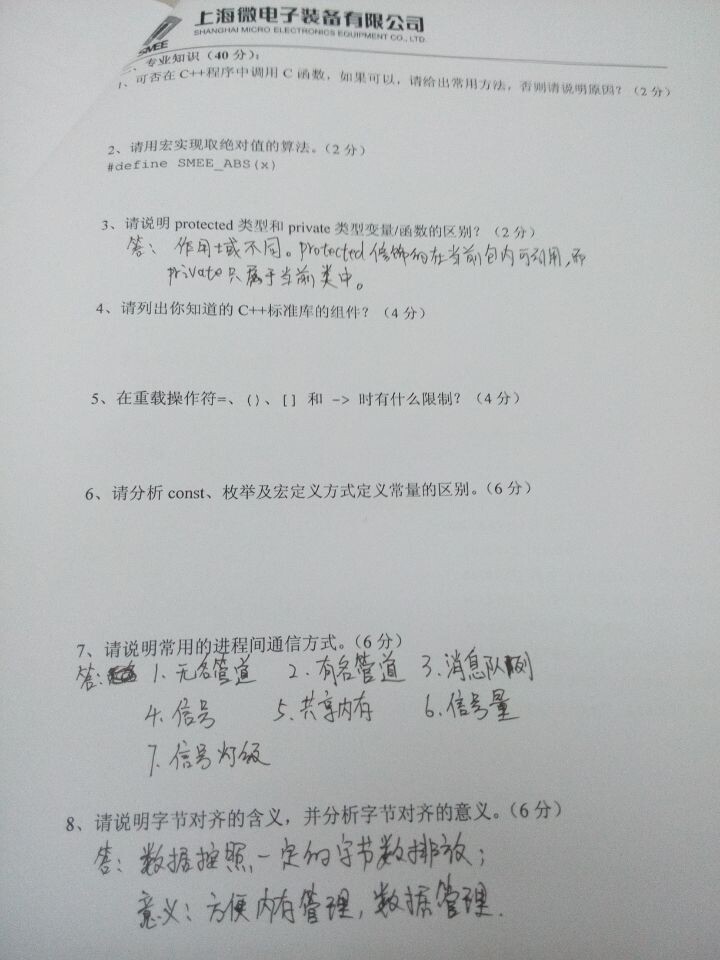 SMEE
上海微电子装备有限公司
SHANGHAI MICRO ELECTRONICS EQUIPMENT CO., LTD.
二、专业知识（40分）：
1、可否在 C++程序中调用 C 函数，如果可以，请给出常用方法，否则请说明原因？（2 分）
2、请用宏实现取绝对值的算法。（2 分）
#define SMEE_ABS(x)
3、请说明 protected 类型和 private 类型变量/函数的区别？（2 分）
答：作用域不同。protected修饰的在当前包内可引用，而
private只属于当前类中。
4、请列出你知道的 C++标准库的组件？（4 分）
5、在重载操作符=、()、[] 和 -> 时有什么限制？（4 分）
6、请分析 const、枚举及宏定义方式定义常量的区别。（6 分）
7、请说明常用的进程间通信方式。（6 分）
答： 1、无名管道 2、有名管道 3、消息队列
4、信号 5、共享内存 6、信号量
7、信号灯级
8、请说明字节对齐的含义，并分析字节对齐的意义。（6 分）
答：数据按照一定的字节数排放；
意义：方便内存管理，数据管理.